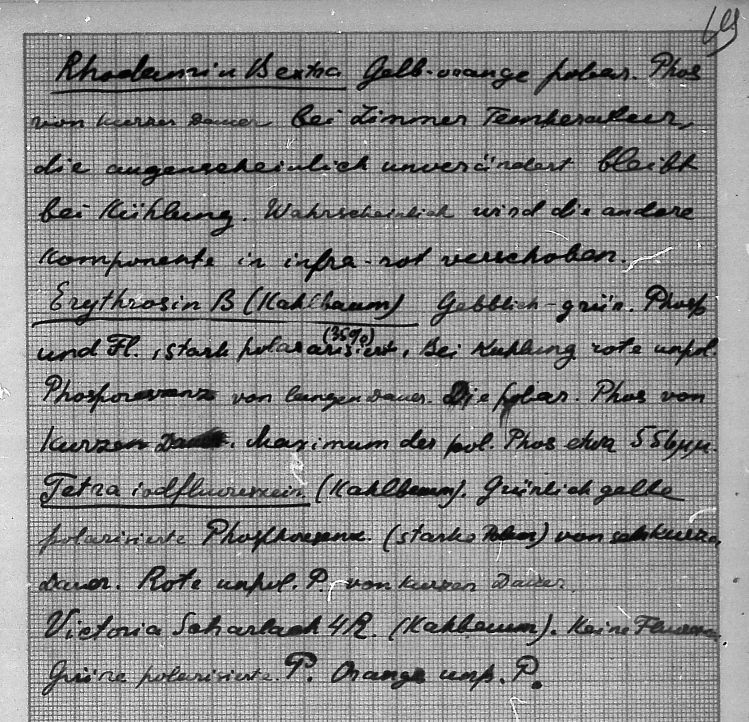 69
Rhodamin B extra Gelb-orange polar. Phos
von kurzer Dauer bei Zimmer Temperatur,
die augenscheinlich unverändert bleibt
bei Kühlung. Wahrscheinlich wird die andere
Komponente in infra-rot verschoben.
Erythrosin B (Kahlbaum) Gelblich-grün. Phosp
und Fl., stark polararisiert, (35%) Bei Kuhlung rote unpol.
Phosporesvenz von langen Dauer. Die polar. Phos von
kurzen Dauer. Maximum der pol. Phos etwa 556μμ.
Tetraiodfluorescein (Kahlbaum). Grünlich gelbe
polarisierte Phosphoresvenz. (starke Polaris) von sehr kurzer
Dauer. Rote unpol. P. von kurzen Dauer.
Victoria Scharlach 4R. (Kahlbaum). Keine
Grüne polarisierte P. Orange unp. P.